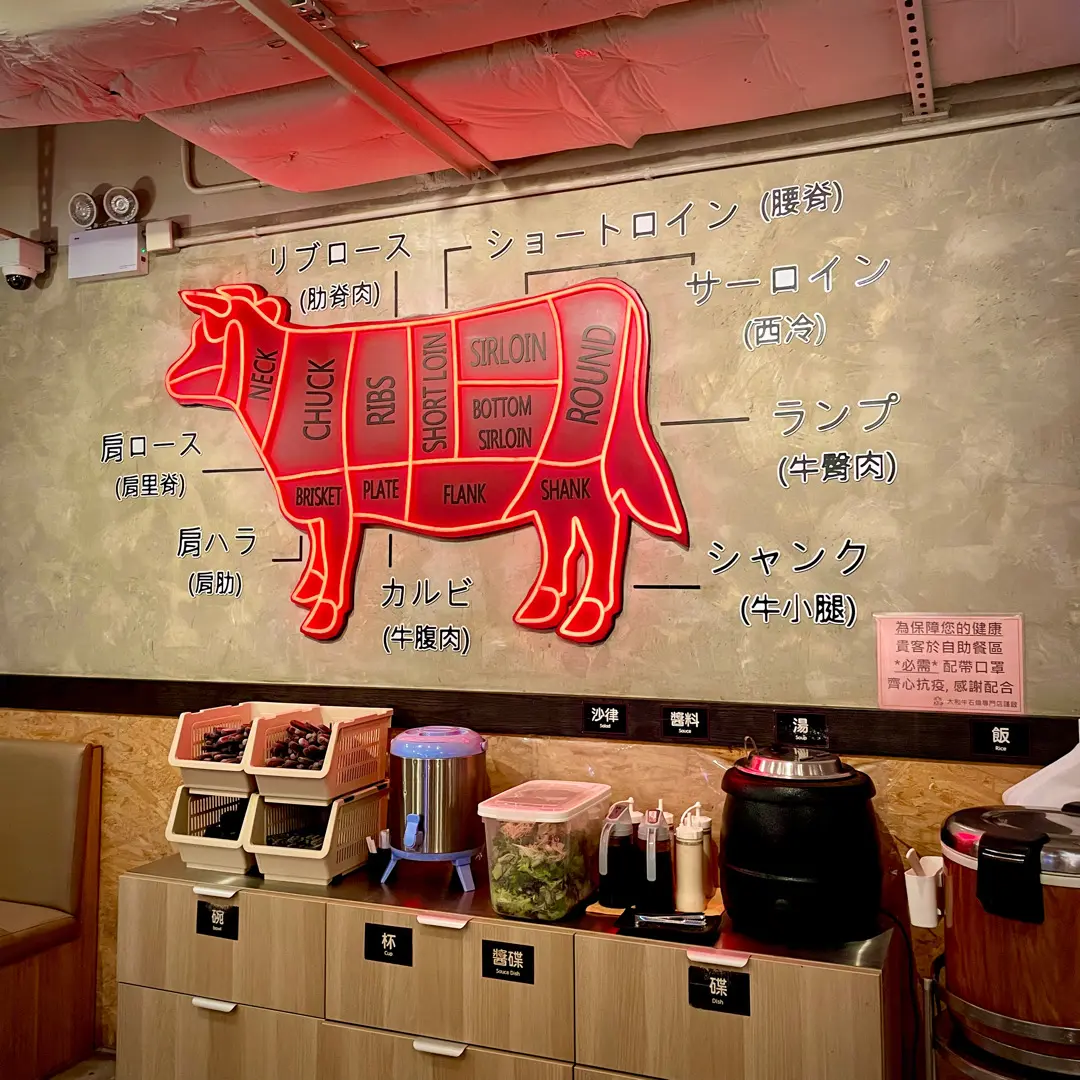 リブロース
(肋脊肉)
ショートロイン (腰脊)
サーロイン
(西冷)
NECK
CHUCK
RIBS
SHORT LOIN
SIRLOIN
BOTTOM
SIRLOIN
ROUND
BRISKET
PLATE
FLANK
SHANK
肩ロース
(肩里脊)
肩ハラ
(肩肋)
カルビ
(牛腹肉)
ランプ
(牛臀肉)
シャンク
(牛小腿)
為保障您的健康
貴客於自助餐區
*必需* 配帶口罩
齊心抗疫, 感謝配合
沙律
Salad
醬料
Sauce
湯
Soup
飯
Rice
碗
Bowl
杯
Cup
醬碟
Sauce Dish
碟
Dish